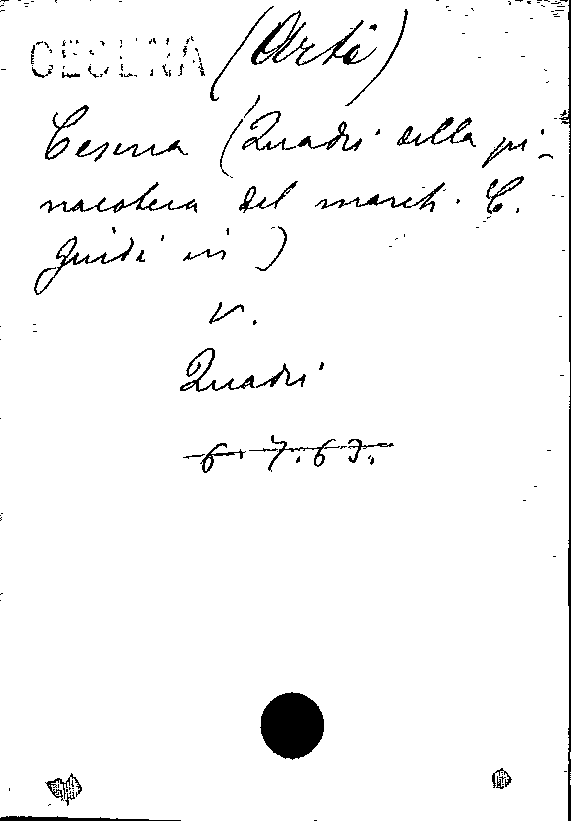 CESENA (Arte)
Cesena (Quadri della pi-
nacoteca del march. C.
Guidi in)
v.
Quadri
6.7.63.